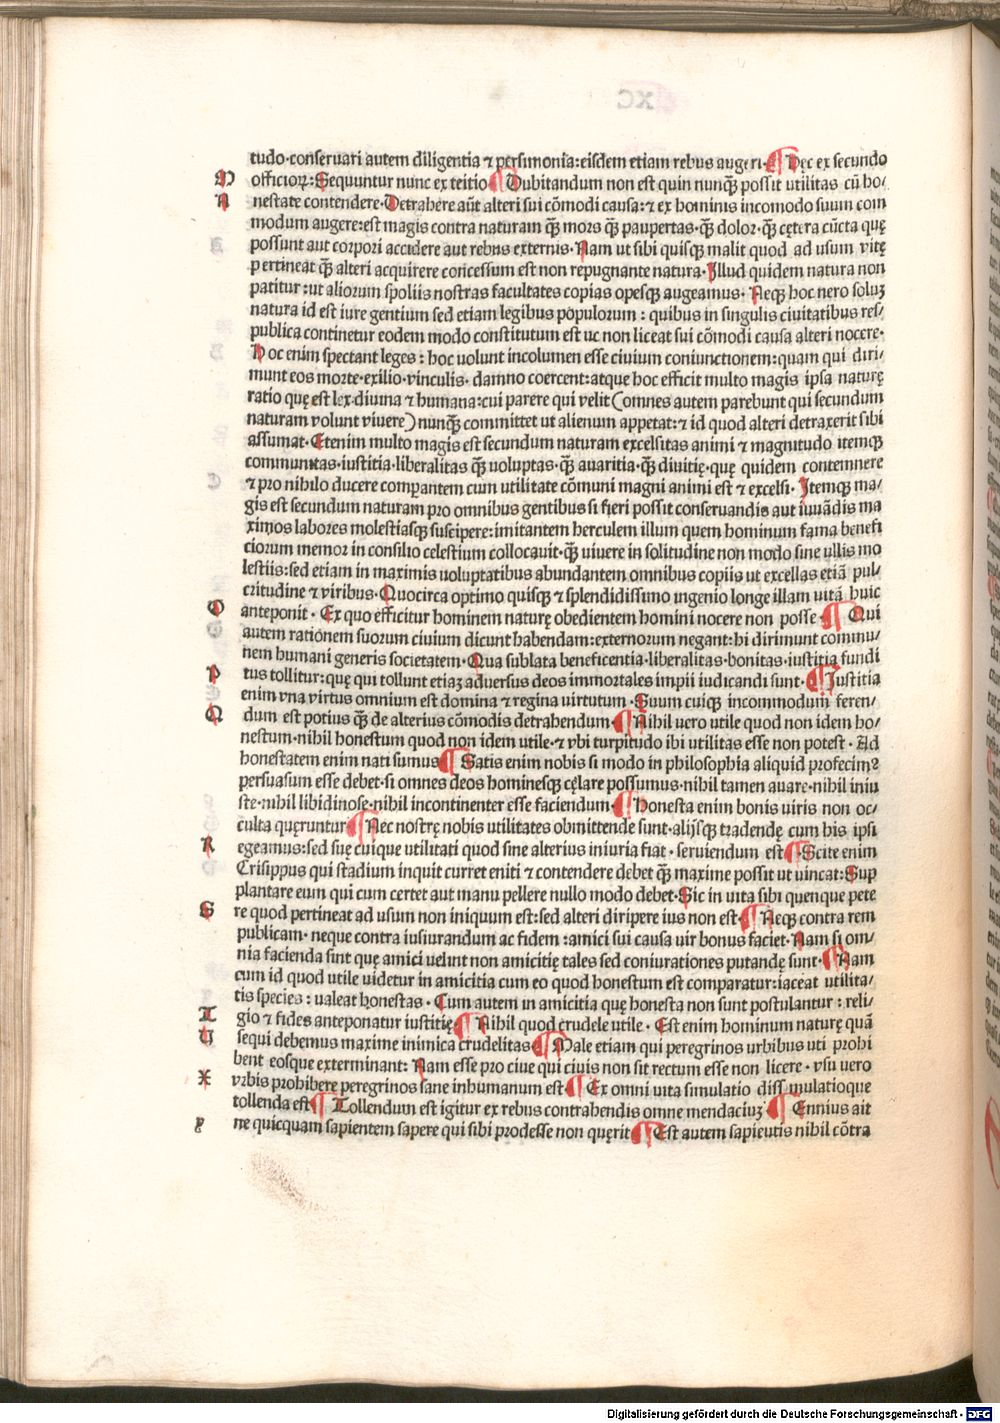 tudo·conseruari autem diligentia ⁊ persimonia:eisdem etiam rebus augeri·¶ Hęc ex secundo
M officioꝝ:Sequuntur nunc ex teitio ¶ Dubitandum non est quin nunꝙ̃ possit utilitas cū ho/
N nestate contendere·Detrahere aūt alteri sui cōmodi causa:⁊ ex hominis incomodo suum com
modum augere:est magis contra naturam ꝙ̃ mors ꝙ̃ paupertas·ꝙ̃ dolor·ꝙ̃ cętera cūcta quę
possunt aut corpori accidere aut rebus externis·Nam ut sibi quisqꝫ malit quod ad usum vitę
pertineat ꝙ̃ alteri acquirere concessum est non repugnante natura·Illud quidem natura non
patitur:ut aliorum spoliis nostras facultates copias opesqꝫ augeamus·Neqꝫ hoc nero soluꝫ
natura id est iure gentium sed etiam legibus populorum : quibus in singulis ciuitatibus res/
publica continetur eodem modo constitutum est uc non liceat sui cōmodi causa alteri nocere·
Hoc enim spectant leges : hoc uolunt incolumen esse ciuium coniunctionem:quam qui diri/
munt eos morte·exilio·vinculis·damno coercent:atque hoc efficit multo magis ipsa naturę
ratio quę est lex diuina ⁊ humana:cui parere qui velit (omnes autem parebunt qui secundum
naturam volunt viuere) nunꝙ̃ committet ut alienum appetat:⁊ id quod alteri detraxerit sibi
assumat·Etenim multo magis est secundum naturam excelsitas animi ⁊ magnitudo itemqꝫ
communitas·iustitia·liberalitas ꝙ̃ uoluptas·ꝙ̃ auaritia·ꝙ̃ diuitię·quę quidem contemnere
⁊ pro nihilo ducere comparantem cum utilitate cōmuni magni animi est ⁊ excelsi·Itemqꝫ ma/
gis est secundum naturam pro omnibus gentibus si fieri possit conseruandis aut iuuādis ma
ximos labores molestiasqꝫ suscipere:imitantem herculem illum quem hominum fama benefi
ciorum memor in consilio celestium collocauit·ꝙ̃ uiuere in solitudine non modo sine ullis mo
lestiis:sed etiam in maximis uoluptatibus abundantem omnibus copiis ut excellas etiā pul/
critudine ⁊ viribus·Quocirca optimo quisqꝫ ⁊ splendidissimo ingenio longe illam uitā huic
O anteponit · Ex quo efficitur hominem naturę obedientem homini nocere non posse ¶ Qui
autem rationem suorum ciuium dicunt habendam:externorum negant:hi dirimunt commu/
nem humani generis societatem·Qua sublata beneficentia·liberalitas·bonitas·iustitia fundi
P tus tollitur:quę qui tollunt etiaꝫ aduersus deos immortales impii iudicandi sunt·¶ Iustitia
enim vna virtus omnium est domina ⁊ regina virtutum·Suum cuiqꝫ incommodum feren/
Q dum est potius ꝙ̃ de alterius cōmodis detrahendum·¶ Nihil uero utile quod non idem ho/
nestum·nihil honestum quod non idem utile·⁊ vbi turpitudo ibi utilitas esse non potest · Ad
honestatem enim nati sumus ¶ Satis enim nobis si modo in philosophia aliquid profecimꝰ
persuasum esse debet·si omnes deos hominesqꝫ cęlare possumus·nihil tamen auare·nihil iniu
ste·nihil libidinose·nihil incontinenter esse faciendum·¶ Honesta enim bonis uiris non oc/
culta quęruntur ¶ Nec nostrę nobis utilitates obmittende sunt·alijsqꝫ tradendę cum his ipsi
R egeamus:sed suę cuique utilitati quod sine alterius iniuria fiat · seruiendum est ¶ Scite enim
Crisippus qui stadium inquit curret eniti ⁊ contendere debet ꝙ̃ maxime possit ut uincat:Sup
plantare eum qui cum certet aut manu pellere nullo modo debet·Sic in uita sibi quenque pete
S re quod pertineat ad usum non iniquum est:sed alteri diripere ius non est ¶ Neqꝫ contra rem
publicam· neque contra iusiurandum ac fidem :amici sui causa uir bonus faciet·Nam si om/
nia facienda sint quę amici uelint non amicitię tales sed coniurationes putandę sunt·¶ Nam
cum id quod utile uidetur in amicitia cum eo quod honestum est comparatur:iaceat utilita/
tis species : ualeat honestas · Cum autem in amicitia quę honesta non sunt postulantur : reli/
T gio ⁊ fides anteponatur iustitię ¶ Nihil quod crudele utile · Est enim hominum naturę quā
U sequi debemus maxime inimica crudelitas ¶ Male etiam qui peregrinos urbibus uti prohi
bent eosque exterminant: Nam esse pro ciue qui ciuis non sit rectum esse non licere · vsu uero
X vrbis prohibere peregrinos sane inhumanum est ¶ Ex omni uita simulatio dissimulatioque
tollenda est ¶ Tollendum est igitur ex rebus contrahendis omne mendaciuꝫ ¶ Ennius ait
y ne quicquam sapientem sapere qui sibi prodesse non quęrit ¶ Est autem sapieutis nihil cōtra
Digitalisierung gefördert durch die Deutsche Forschungsgemeinschaft · DFG